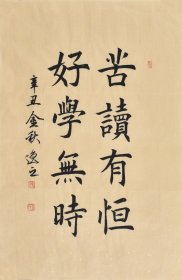 苦讀有恒
好學無時
辛丑金秋逸之